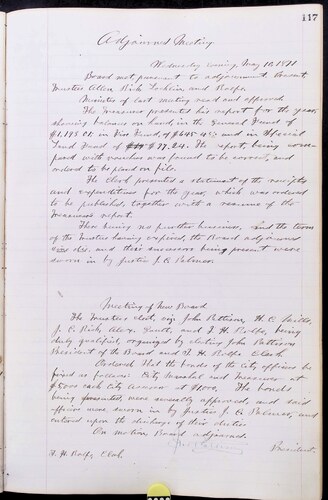 117
Adjourned Meeting
Wednesday evening, May 10, 1871
Board met pursuant to adjournment. Present
Trustees Allen Rich and Rolfe.
Minutes of last meeting read and approved.
The Treasurer presented his report for the year,
showing balance on hand, in the General Fund of
in Fire Fund, of and in Special
Fund of $77.24. The report, being com-
pared with vouchers was found to be correct, and
ordered to be placed on file.
The Clerk presented a statement of the receipts
and expenditures for the year, which was ordered
to be published, together with a resume of the
Treasurer's report.
There being no further business, and the term
of the Trustees having expired, the Board adjourned
sine die, and their successors being present were
sworn in by Justice J. E. Palmer.
Meeting of New Board
The Trustees elect, viz: John Pattison, H. C.
J. C. Rich, Alex. and F. H. Rolfe, being
duly qualified, organized by electing John Pattison
President of the Board and F. H. Rolfe Clerk
Ordered that the bonds of the City officers be
fixed as follows: City Marshal and Treasurer at
$5000 each City Assessor at $1000. The bonds
being presented, were severally approved, and said
officers were sworn in by Justice J. E. Palmer, and
entered upon the discharge of their duties
On motion Board adjourned.
President.
F. H. Rolfe Clerk